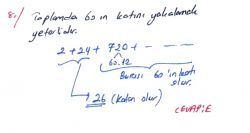 8.) Toplamda 60 ın katını yakalamak
yeterlidir.
2 + 24 + 720 + - - -
60.12
Burası 60'ın katı
olur.
26 (kalan olur)
CEVAP:E